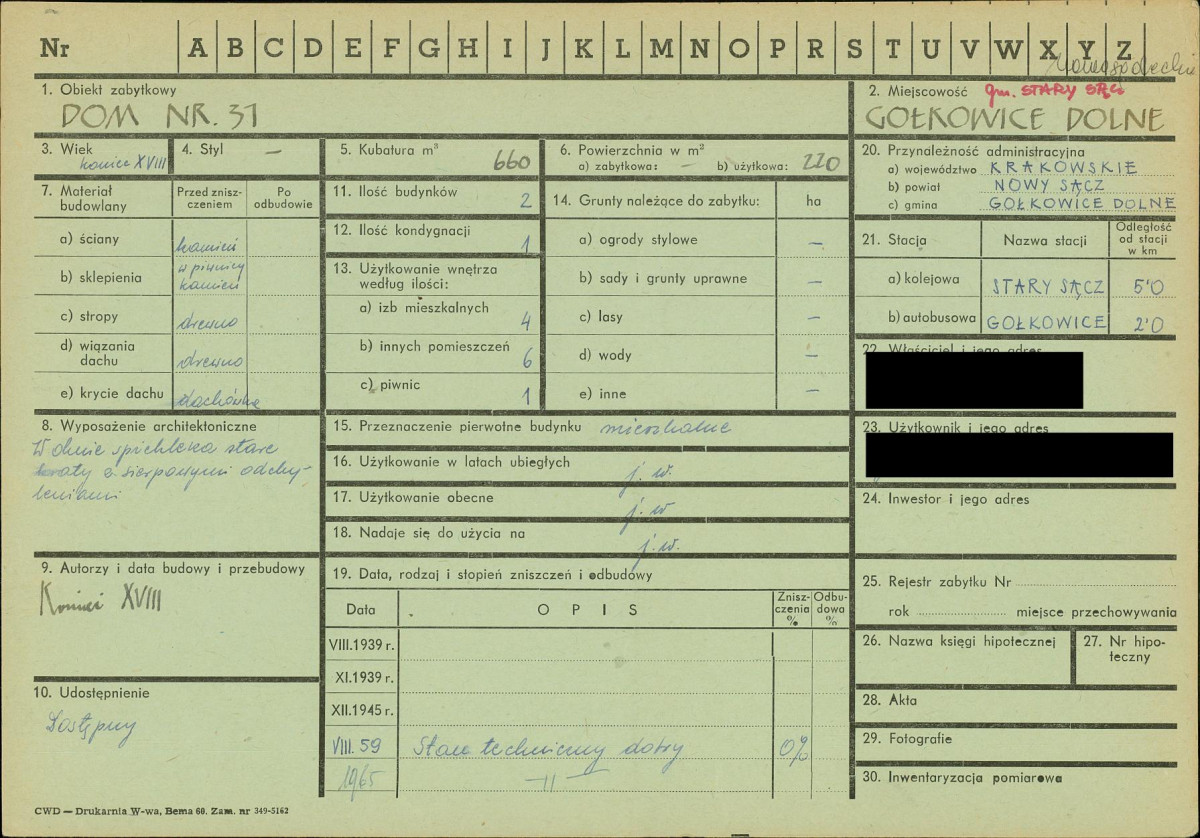 Nr A B C D E F G H I J K L M N O P R S T U V W X Y Z
Nowosądeckie
1. Obiekt zabytkowy
DOM NR. 31
2. Miejscowość gm. STARY SĄCZ
GOŁKOWICE DOLNE
3. Wiek
koniec XVIII
4. Styl —
5. Kubatura m³ 660
6. Powierzchnia w m²
a) zabytkowa: — b) użytkowa: 220
7. Materiał budowlany
Przed zniszczeniem
Po odbudowie
a) ściany kamień
b) sklepienia w piwnicy kamień
c) stropy drewno
d) wiązania dachu drewno
e) krycie dachu dachówka
8. Wyposażenie architektoniczne
W oknie spichlerza stare
kraty z sierpowymi odchy-
leniami
9. Autorzy i data budowy i przebudowy
Koniec XVIII
10. Udostępnienie
Dostępny
11. Ilość budynków 2
12. Ilość kondygnacji 1
13. Użytkowanie wnętrza
według ilości:
a) izb mieszkalnych 4
b) innych pomieszczeń 6
c) piwnic 1
14. Grunty należące do zabytku: ha
a) ogrody stylowe —
b) sady i grunty uprawne —
c) lasy —
d) wody —
e) inne —
15. Przeznaczenie pierwotne budynku mieszkalne
16. Użytkowanie w latach ubiegłych j. w.
17. Użytkowanie obecne j. w
18. Nadaje się do użycia na j. w.
19. Data, rodzaj i stopień zniszczeń i odbudowy
Data OPIS Zniszczenia % Odbudowa %
VIII.1939 r.
XI.1939 r.
XII.1945 r.
VIII. 59 Stan techniczny dobry 0%
1965 —II—
20. Przynależność administracyjna
a) województwo KRAKOWSKIE
b) powiat NOWY SĄCZ
c) gmina GOŁKOWICE DOLNE
21. Stacja Nazwa stacji Odległość od stacji w km
a) kolejowa STARY SĄCZ 5'0
b) autobusowa GOŁKOWICE 2'0
22. Właściciel i jego adres
23. Użytkownik i jego adres
24. Inwestor i jego adres
25. Rejestr zabytku Nr
rok miejsce przechowywania
26. Nazwa księgi hipotecznej
27. Nr hipoteczny
28. Akta
29. Fotografie
30. Inwentaryzacja pomiarowa
CWD — Drukarnia W-wa, Bema 60. Zam. nr 349-5162